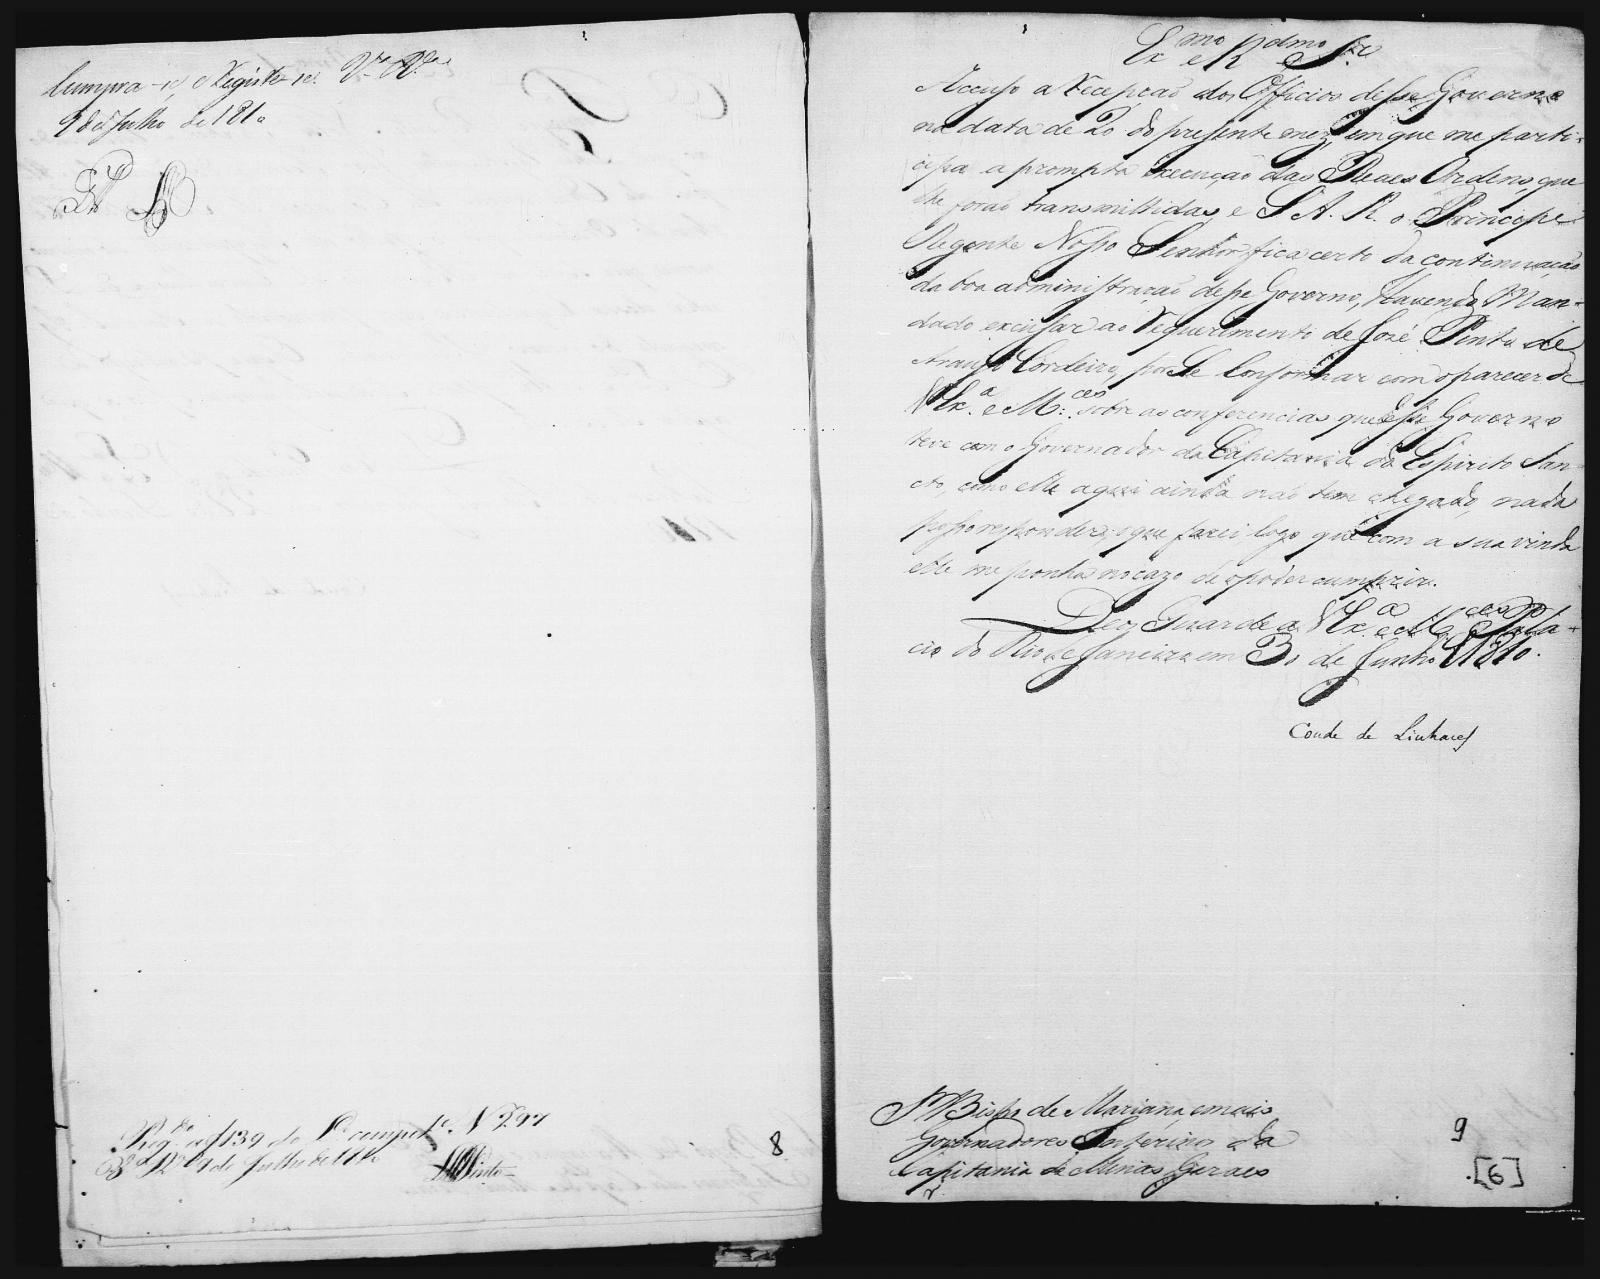 Cumpra-se, e Registe-se. V.ª R.ª
9 de Julho de 1810
Reg.do a f 139 do L.º compet.e N 297
V.ª R.ª 9 de Julho de 1810
Pinto
8
Ex.mo e R.dmo Sr.
Accuso a recepção dos Officios desse Governo
na data de 20 do presente mez, em que me parti-
cipa a prompta execução das Reaes Ordens que
lhe forão transmittidas, e S. A. R. o Principe
Regente Nosso Senhor fica certo da continuação
da boa administração desse Governo, Havendo Man-
dado excusar ao requerimento de José Pinto de
Araujo Cordeiro, por Se Conformar com o parecer de
V Ex.ª e M.ces sobre as conferencias que esse Governo
teve com o Governador da Capitania do Espirito San-
cto, como elle aqui ainda não tem chegado, nada
posso responder, o que farei logo que com a sua vinda
elle me ponha no cazo de o poder cumprir.
Deos Guarde a V Ex.ª e M.ces Pala-
cio do Rio de Janeiro em 30 de Junho 1810.
Conde de Linhares
Sr Bispo de Mariana, e mais
Governadores Interinos da
Capitania de Minas Geraes
9
[6]